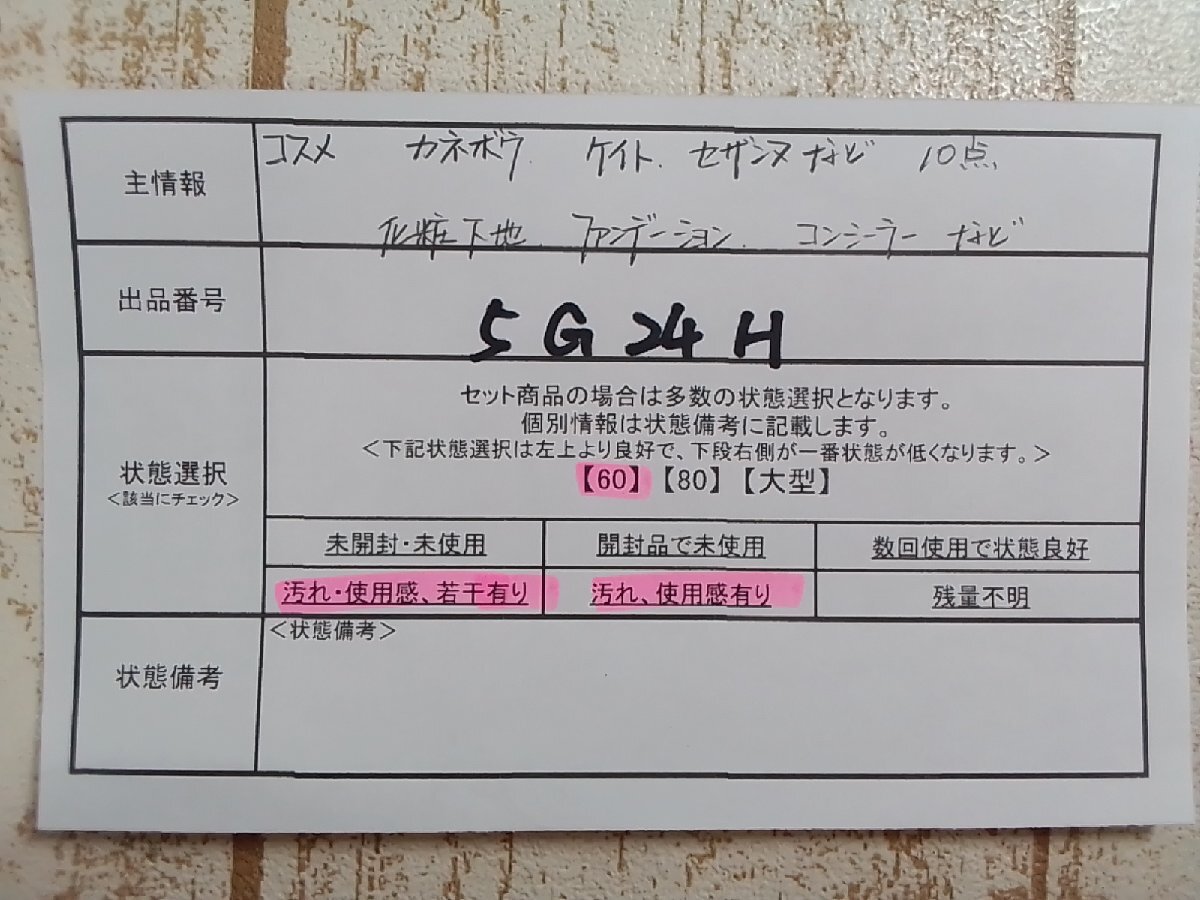 主情報
コスメ カネボウ. ケイト. セザンヌ など 10点
化粧下地. ファンデーション. コンシーラー など
出品番号
5G24H
状態選択
<該当にチェック>
セット商品の場合は多数の状態選択となります。
個別情報は状態備考に記載します。
<下記状態選択は左上より良好で、下段右側が一番状態が低くなります。>
【60】【80】【大型】
未開封・未使用 開封品で未使用 数回使用で状態良好
汚れ・使用感、若干有り 汚れ、使用感有り 残量不明
状態備考
<状態備考>